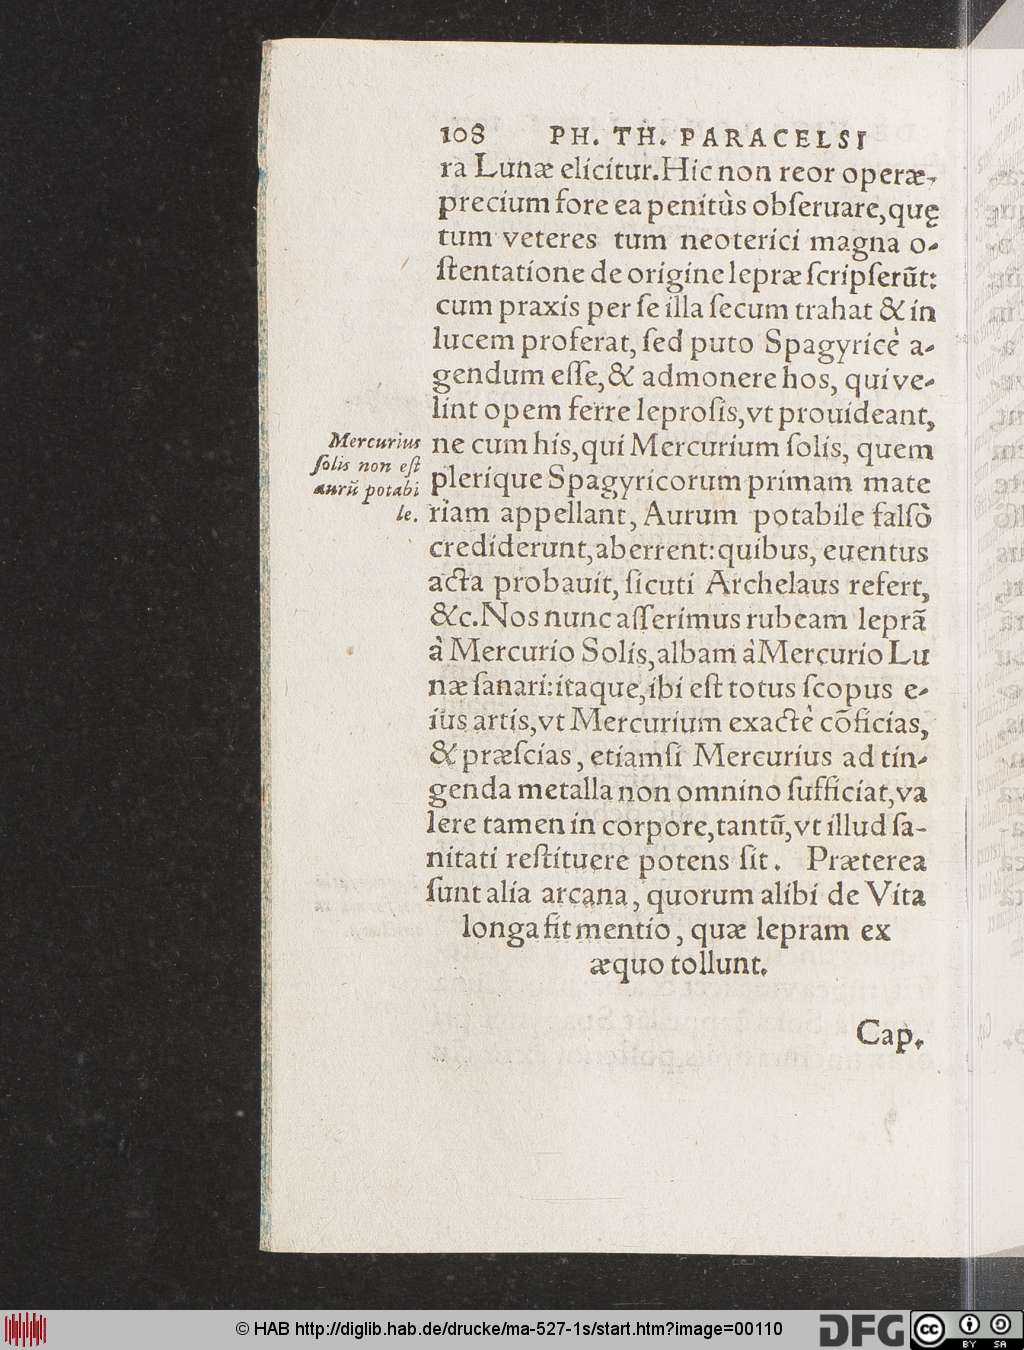 108 PH. TH. PARACELSI
ra Lunæ elicitur. Hic non reor operæ-
precium fore ea penitùs obſeruare, quę
tum veteres tum neoterici magna o-
ſtentatione de origine lepræ ſcripſerũt:
cum praxis per ſe illa ſecum trahat & in
lucem proferat, ſed puto Spagyricè a-
gendum eſſe, & admonere hos, qui ve-
lint opem ferre leproſis, vt prouideant,
ne cum his, qui Mercurium ſolis, quem
plerique Spagyricorum primam mate
riam appellant, Aurum potabile falſò
crediderunt, aberrent: quibus, euentus
acta probauit, ſicuti Archelaus refert,
&c. Nos nunc aſſerimus rubeam leprã
à Mercurio Solis, albam à Mercurio Lu
næ ſanari: itaque, ibi eſt totus ſcopus e-
ius artis, vt Mercurium exactè cõficias,
& præſcias, etiamſi Mercurius ad tin-
genda metalla non omnino ſufficiat, va
lere tamen in corpore, tantũ, vt illud ſa-
nitati reſtituere potens ſit. Præterea
ſunt alia arcana, quorum alibi de Vita
longa fit mentio, quæ lepram ex
æquo tollunt.
Cap.
Mercurius
ſolis non eſt
aurũ potabi
le.
© HAB http://diglib.hab.de/drucke/ma-527-1s/start.htm?image=00110
DFG
cc
BY SA